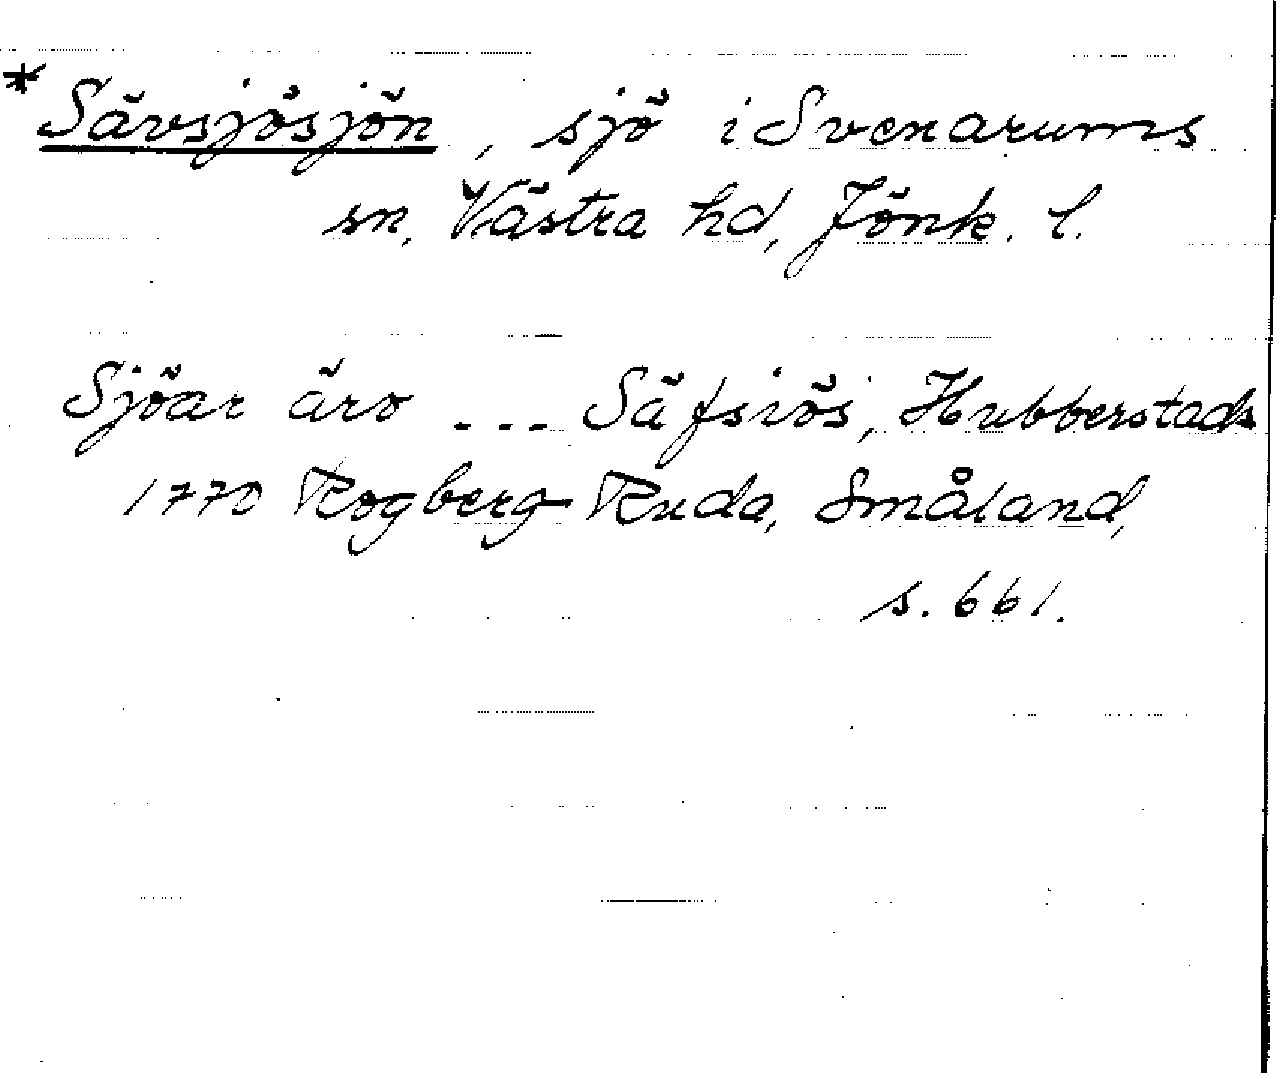 * Sävsjösjön, sjö i Svenarums
sn, Västra hd, Jönk. l.
Sjöar äro --- Säfsiös, Hubberstads
1770 Rogberg-Ruda, Småland,
s. 661.